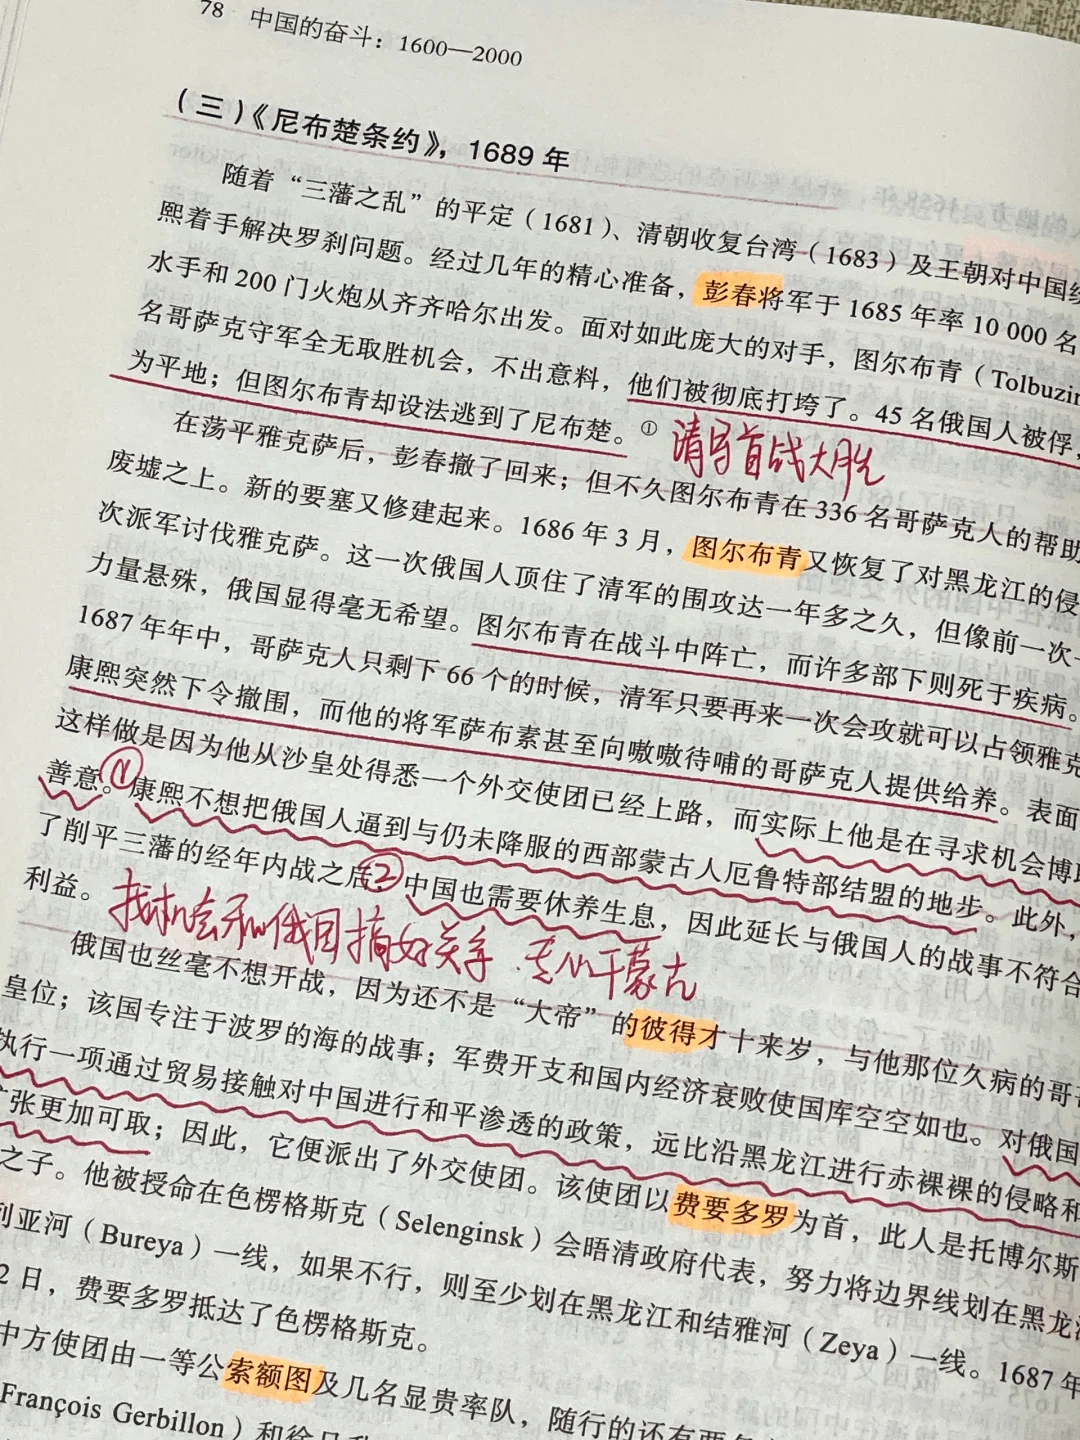 78 中国的奋斗：1600—2000
（三）《尼布楚条约》，1689 年
随着“三藩之乱”的平定（1681）、清朝收复台湾（1683）及王朝对中国
熙着手解决罗刹问题。经过几年的精心准备，彭春将军于 1685 年率 10 000 名
水手和 200 门火炮从齐齐哈尔出发。面对如此庞大的对手，图尔布青（Tolbuzin
名哥萨克守军全无取胜机会，不出意料，他们被彻底打垮了。45 名俄国人被俘，
为平地；但图尔布青却设法逃到了尼布楚。①
清军首战大胜
在荡平雅克萨后，彭春撤了回来；但不久图尔布青在 336 名哥萨克人的帮助
废墟之上。新的要塞又修建起来。1686 年 3 月，图尔布青又恢复了对黑龙江的侵
次派军讨伐雅克萨。这一次俄国人顶住了清军的围攻达一年多之久，但像前一次
力量悬殊，俄国显得毫无希望。图尔布青在战斗中阵亡，而许多部下则死于疾病。
1687 年年中，哥萨克人只剩下 66 个的时候，清军只要再来一次会攻就可以占领雅克
康熙突然下令撤围，而他的将军萨布素甚至向嗷嗷待哺的哥萨克人提供给养。表面
这样做是因为他从沙皇处得悉一个外交使团已经上路，而实际上他是在寻求机会博
善意。①康熙不想把俄国人逼到与仍未降服的西部蒙古人厄鲁特部结盟的地步。此外，
了削平三藩的经年内战之后②中国也需要休养生息，因此延长与俄国人的战事不符合
利益。
找机会和俄国搞好关系 专心干蒙古
俄国也丝毫不想开战，因为还不是“大帝”的彼得才十来岁，与他那位久病的哥
皇位；该国专注于波罗的海的战事；军费开支和国内经济衰败使国库空空如也。对俄国
执行一项通过贸易接触对中国进行和平渗透的政策，远比沿黑龙江进行赤裸裸的侵略和
张更加可取；因此，它便派出了外交使团。该使团以费要多罗为首，此人是托博尔斯
之子。他被授命在色楞格斯克（Selenginsk）会晤清政府代表，努力将边界线划在黑龙
列亚河（Bureya）一线，如果不行，则至少划在黑龙江和结雅河（Zeya）一线。1687 年
2 日，费要多罗抵达了色楞格斯克。
中方使团由一等公索额图及几名显贵率队，随行的还有两名
François Gerbillon）和徐日升